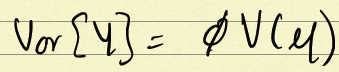 Var[Y] = φ V(μ)